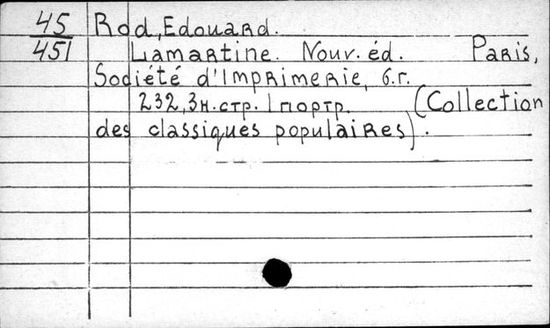 45 Rod, Edouard.
451 Lamartine. Nouv. éd. Paris,
Société d'Imprimerie, б.г.
232, 3н. стр. 1 портр. (Collection
des classiques populaires).